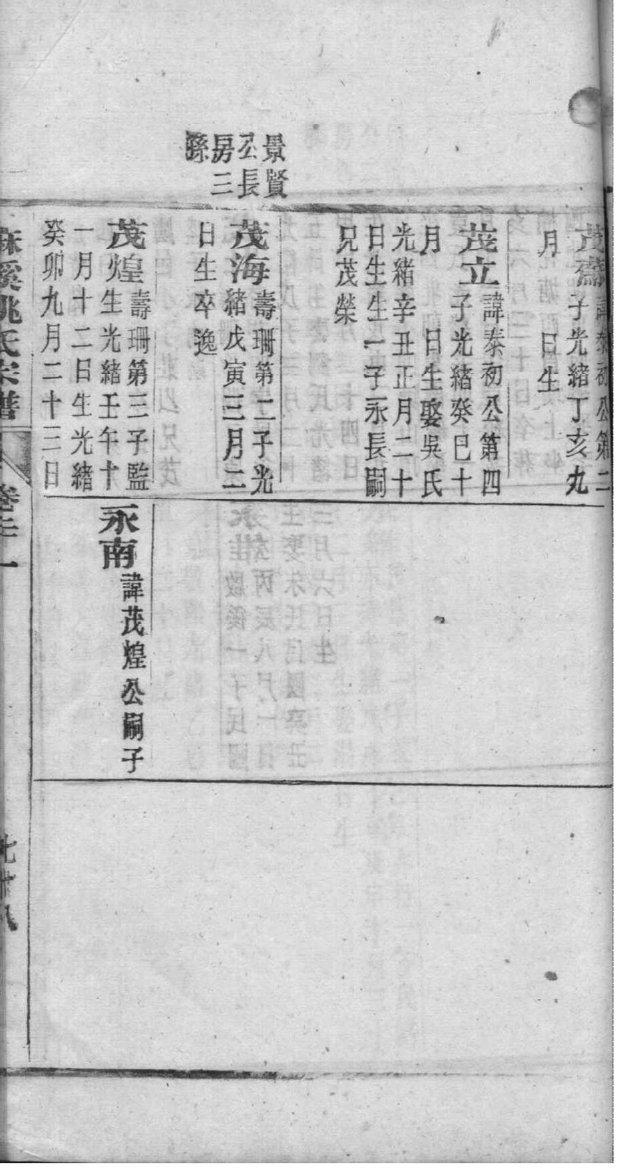 景賢
公長
房三
孫
茂
子光緒丁亥九
月　日生
茂立諱泰初公第四
子光緒癸巳十
月　日生娶吳氏
光緒辛丑正月二十
日生生一子永長嗣
兄茂榮
茂海壽珊第二子光
緒戊寅三月二
日生卒逸
茂煌壽珊第三子監
生光緒壬午十
一月十二日生光緒
癸卯九月二十三日
永南諱茂煌公嗣子
麻溪姚氏宗譜
七十八